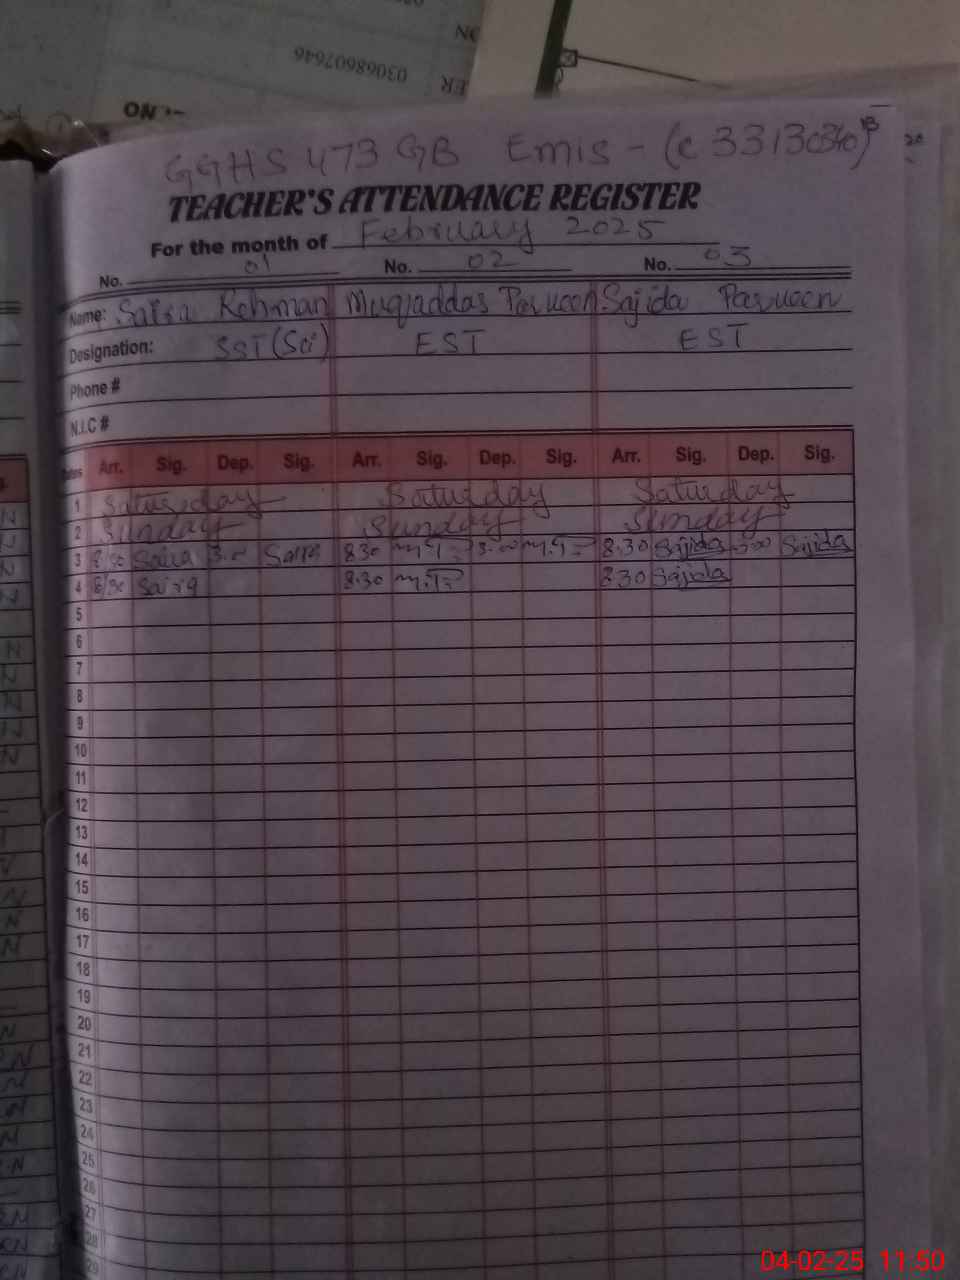 03068607646
ER
GGHS 473 GB Emis - (
TEACHER'S ATTENDANCE REGISTER
For the month of February 2025
No. 01 No. 02 No. 03
Name: Saira Rehman Muqaddas Parveen Sajida Parveen
Designation: SST (Sci) EST EST
Phone #
N.I.C #
Dates Arr. Sig. Dep. Sig. Arr. Sig. Dep. Sig. Arr. Sig. Dep. Sig.
1 Saturday Saturday Saturday
2 Sunday Sunday Sunday
3 8:30 Saira 3:00 Saira 8:30 3:00 8:30 Sajida 3:00 Sajida
4 8:30 Saira 8:30 8:30 Sajida
5
6
7
8
9
10
11
12
13
14
15
16
17
18
19
20
21
22
23
24
25
26
27
28
29
04-02-25 11:50